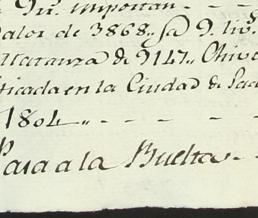 importan
Valor de 3868,
Matanza de 9147,, Chivo
ficada en la Ciudad de
1804,, - - - -
Pasa a la Buelta - -